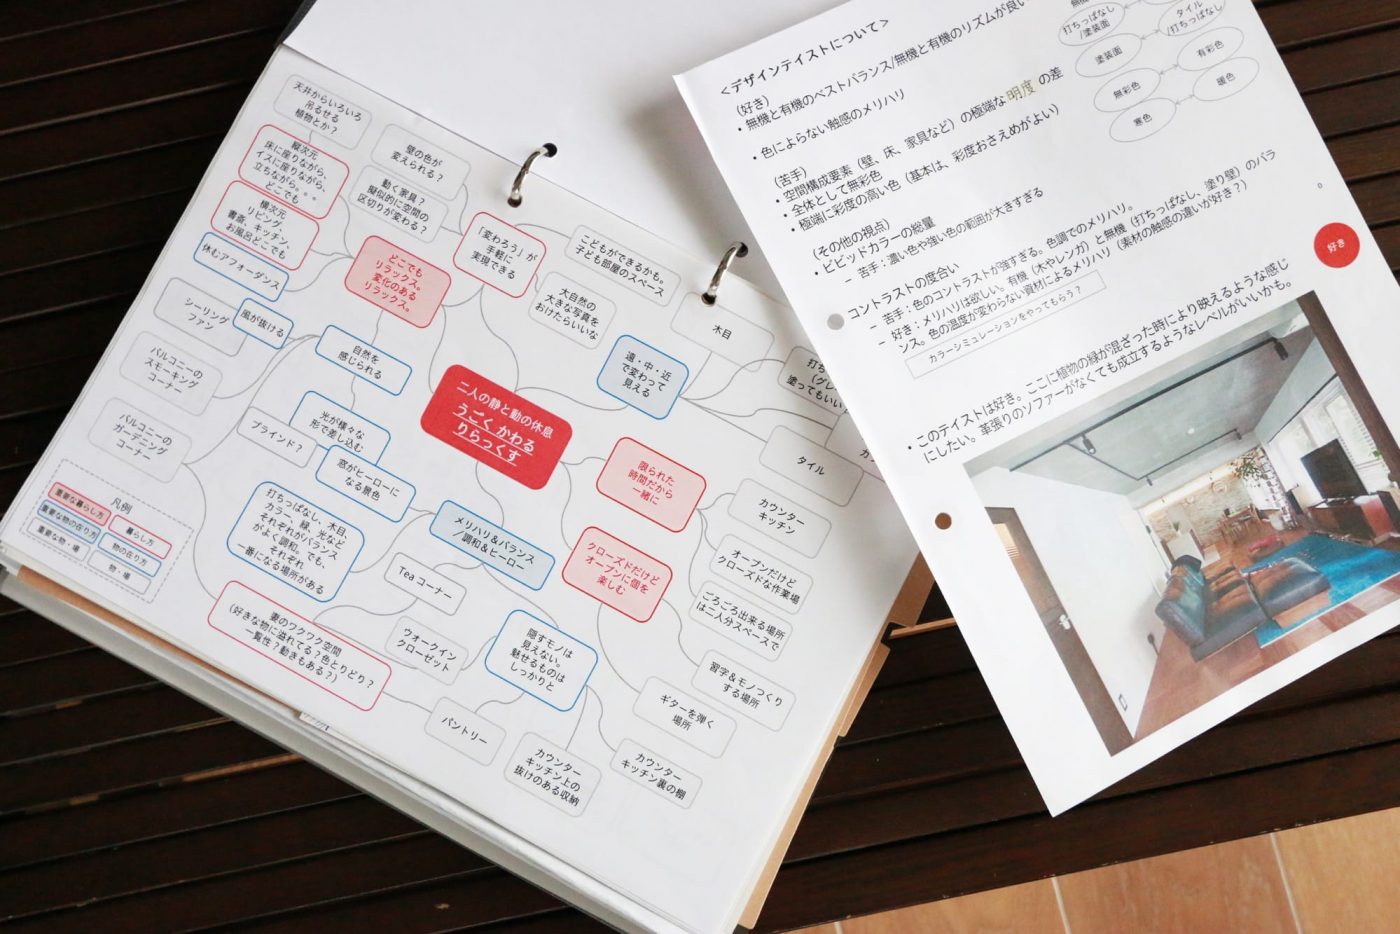 天井からいろいろ
吊るせる
植物とか？
縦次元
床に座りながら、
イスに座りながら、
立ちながら。。。
どこでも
横次元
リビング、
書斎、キッチン、
お風呂どこでも
休むアフォーダンス
シーリング
ファン
風が抜ける
バルコニーの
スモーキング
コーナー
バルコニーの
ガーデニング
コーナー
壁の色が
変えられる？
動く家具？
擬似的に空間の
区切りが変わる？
どこでも
リラックス。
変化のある
リラックス。
「変わろう」が
手軽に
実現できる
こどもができるかも。
子ども部屋のスペース
大自然の
大きな写真を
おけたらいいな
木目
遠・中・近
で変わって
見える
塗ってもいい
タイル
自然を
感じられる
光が様々な
形で差し込む
ブラインド？
窓がヒーローに
なる景色
二人の静と動の休息
うごく かわる
りらっくす
限られた
時間だから
一緒に
カウンター
キッチン
クローズドだけど
オープンに個を
楽しむ
オープンだけど
クローズドな作業場
ごろごろ出来る場所
は二人分スペースで
習字＆モノづくり
する場所
ギターを弾く
場所
メリハリ＆バランス
/調和＆ヒーロー
打ちっぱなし、木目、
カラー、緑、光など
それぞれがバランス
がよく調和。でも、
それぞれ
一番になる場所がある
Tea コーナー
妻のワクワク空間
（好きな物に溢れてる？色とりどり？
一覧性？動きもある？）
ウォークイン
クローゼット
隠すモノは
見えない。
魅せるものは
しっかりと
パントリー
カウンター
キッチン上の
抜けのある収納
カウンター
キッチン裏の棚
凡例
重要な暮らし方
暮らし方
重要な物の在り方
物の在り方
重要な物・場
物・場
＜デザインテイストについて＞
（好き）
・無機と有機のベストバランス/無機と有機のリズムが良い
・色によらない触感のメリハリ
（苦手）
・空間構成要素（壁、床、家具など）の極端な明度の差
・全体として無彩色
・極端に彩度の高い色（基本は、彩度おさえめがよい）
（その他の視点）
・ビビッドカラーの総量
－ 苦手：濃い色や強い色の範囲が大きすぎる
コントラストの度合い
－ 苦手：色のコントラストが強すぎる。色調でのメリハリ。
－ 好き：メリハリは欲しい。有機（木やレンガ）と無機（打ちっぱなし、塗り壁）のバラ
ンス。色の温度が変わらない資材によるメリハリ（素材の触感の違いが好き？）
カラーシミュレーションをやってもらう？
打ちっぱなし
/塗装面
タイル
/打ちっぱなし
塗装面
有彩色
無彩色
暖色
寒色
好き
・このテイストは好き。ここに植物の緑が混ざった時により映えるような感じ
にしたい。革張りのソファーがなくても成立するようなレベルがいいかも。